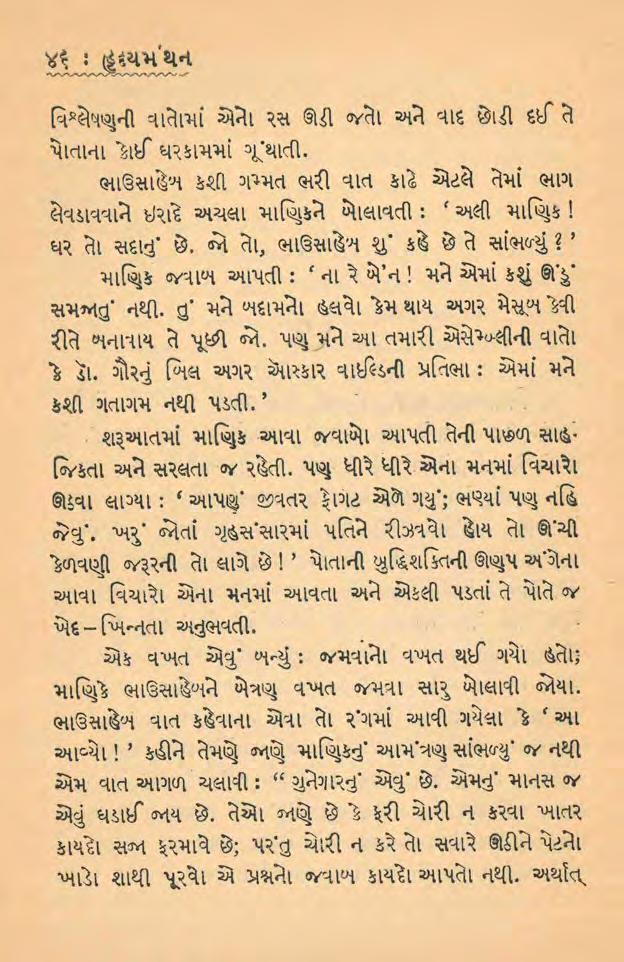 ૪૬ : હૃદયમંથન
વિશ્લેષણની વાતોમાં એનો રસ ઊડી જતો અને વાદ છોડી દઈ તે
પોતાના કોઈ ઘરકામમાં ગૂંથાતી.
ભાઉસાહેબ કશી ગમ્મત ભરી વાત કાઢે એટલે તેમાં ભાગ
લેવડાવવાને ઇરાદે અચલા માણિકને બોલાવતી : ‘ અલી માણિક !
ઘર તો સદાનું છે. જો તો, ભાઉસાહેબ શું કહે છે તે સાંભળ્યું ? ’
માણિક જવાબ આપતી : ‘ ના રે બે’ન ! મને એમાં કશું ઊંડું
સમજાતું નથી. તું મને બદામનો હલવો કેમ થાય અગર મેસૂબ કેવી
રીતે બનાવાય તે પૂછી જો. પણ મને આ તમારી એસેમ્બ્લીની વાતો
કે ડૉ. ગૌરનું બિલ અગર ઑસ્કાર વાઇલ્ડની પ્રતિભા : એમાં મને
કશી ગતાગમ નથી પડતી. ’
શરૂઆતમાં માણિક આવા જવાબો આપતી તેની પાછળ સાહ-
જિકતા અને સરલતા જ રહેતી. પણ ધીરે ધીરે એના મનમાં વિચારો
ઊઠવા લાગ્યા : ‘ આપણું જીવતર ફોગટ એળે ગયું; ભણ્યાં પણ નહિ
જેવું. ખરું જોતાં ગૃહસંસારમાં પતિને રીઝવવો હોય તો ઊંચી
કેળવણી જરૂરની તો લાગે છે ! ’ પોતાની બુદ્ધિશક્તિની ઊણપ અંગેના
આવા વિચારો એના મનમાં આવતા અને એકલી પડતાં તે પોતે જ
ખેદ – ખિન્નતા અનુભવતી.
એક વખત એવું બન્યું : જમવાનો વખત થઈ ગયો હતો;
માણિકે ભાઉસાહેબને બેત્રણ વખત જમવા સારુ બોલાવી જોયા.
ભાઉસાહેબ વાત કહેવાના એવા તો રંગમાં આવી ગયેલા કે ‘ આ
આવ્યો ! ’ કહીને તેમણે જાણે માણિકનું આમંત્રણ સાંભળ્યું જ નથી
એમ વાત આગળ ચલાવી : “ ગુનેગારનું એવું છે. એમનું માનસ જ
એવું ઘડાઈ જાય છે. તેઓ જાણે છે કે ફરી ચોરી ન કરવા ખાતર
કાયદો સજા ફરમાવે છે; પરંતુ ચોરી ન કરે તો સવારે ઊઠીને પેટનો
ખાડો શાથી પૂરવો એ પ્રશ્નનો જવાબ કાયદો આપતો નથી. અર્થાત્